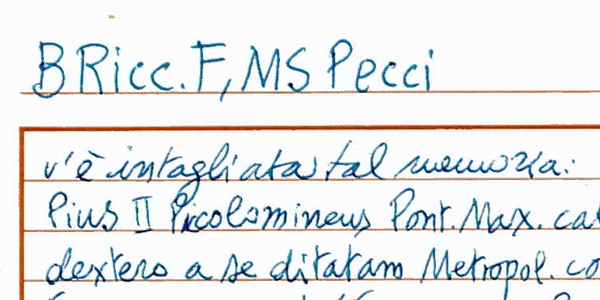 B Ricc. F, MS Pecci
v'è intagliata tal memoria:
Pius II Picolomineus Pont. Max. ca
dextero a se ditatam Metropol. co